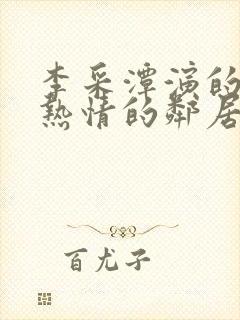 李采潭演的
热情的邻居
百尤子